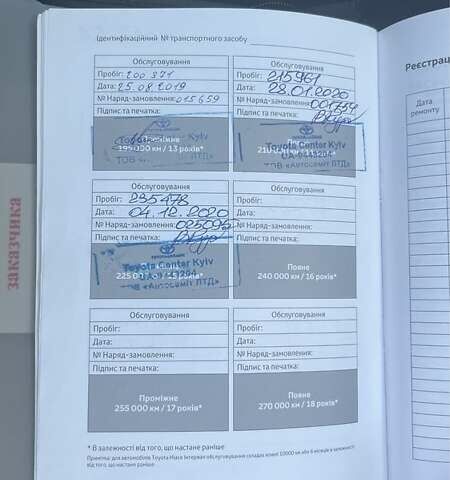 Ідентифікаційний № транспортного засобу
Обслуговування
Пробіг: 200 871
Дата: 25.08.2019
№ Наряд-замовлення: 015659
Підпис та печатка:
195 000 км / 13 років*
Обслуговування
Пробіг: 215961
Дата: 28.01.2020
№ Наряд-замовлення: 001754
Підпис та печатка:
Toyota Center Kyiv
ТОВ «Автосаміт ЛТД»
Обслуговування
Пробіг: 235478
Дата: 04.12.2020
№ Наряд-замовлення: 025095
Підпис та печатка:
Toyota Center Kyiv
ТОВ «Автосаміт ЛТД»
225 000 км / 15 років*
Обслуговування
Пробіг:
Дата:
№ Наряд-замовлення:
Підпис та печатка:
Повне
240 000 км / 16 років*
Обслуговування
Пробіг:
Дата:
№ Наряд-замовлення:
Підпис та печатка:
Проміжне
255 000 км / 17 років*
Обслуговування
Пробіг:
Дата:
№ Наряд-замовлення:
Підпис та печатка:
Повне
270 000 км / 18 років*
* В залежності від того, що настане раніше
Примітка: для автомобілів Toyota Hiace інтервал обслуговування складає кожні 10000 км або 6 місяців в залежності
від того, що настане раніше.
заказчика
Реєстрац
Дата
ремонту